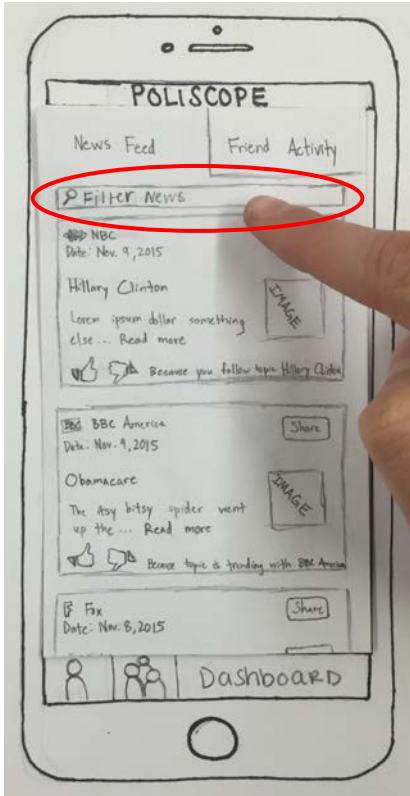 POLISCOPE
News Feed
Friend Activity
Filter News
NBC
Date: Nov. 9, 2015
Hillary Clinton
IMAGE
Lorem ipsum dollar something
else... Read more
Because you follow topic Hillary Clinton
BBC BBC America
Share
Date: Nov. 9, 2015
Obamacare
IMAGE
The itsy bitsy spider went
up the ... Read more
Because topic is trending with BBC America
F Fox
Share
Date: Nov. 8, 2015
Dashboard